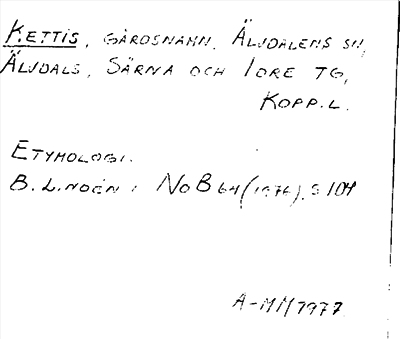 KETTIS, GÅRDSNAMN, ÄLVDALENS SN,
ÄLVDALS, SÄRNA OCH IDRE TG,
KOPP.L.
ETYMOLOGI.
B. LINDÉN I NOB 64 (1976), S 104
A-MM 1977